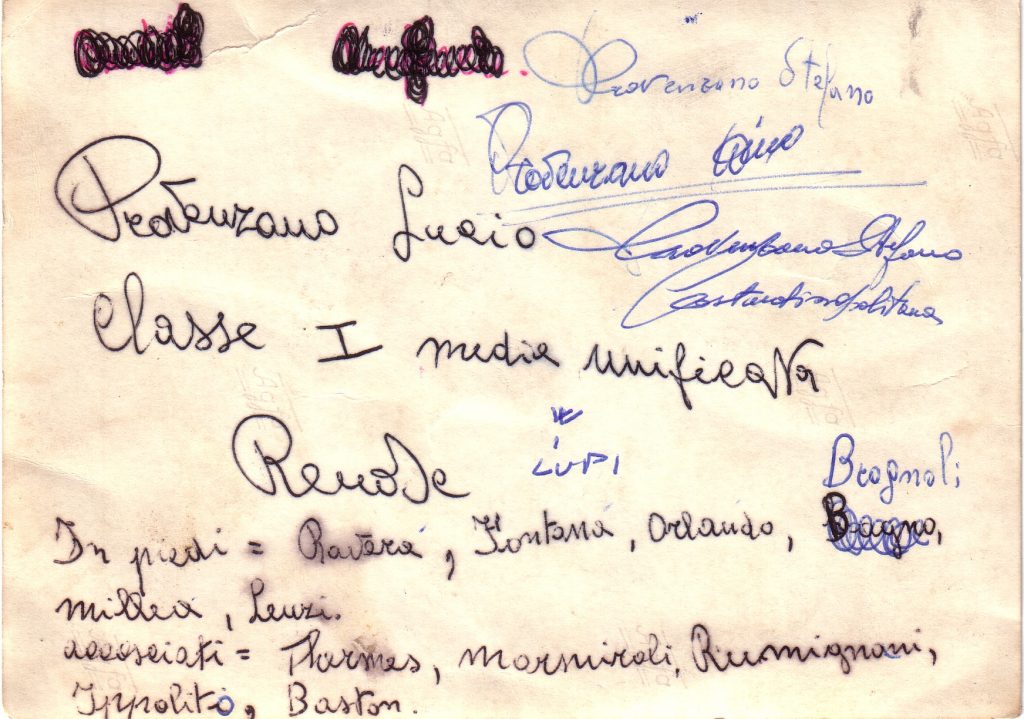 Provenzano Stefano
Provenzano
Provenzano Lucio
Provenzano Stefano
Costantinopolitana
Classe I media unificata
W
i
LUPI
Rende
Brognoli
In piedi = Ravera, Fontana, Orlando,
Millea, Leuzi.
accosciati = Thormes, Marmiroli, Rumignani,
Ippolito, Baston.